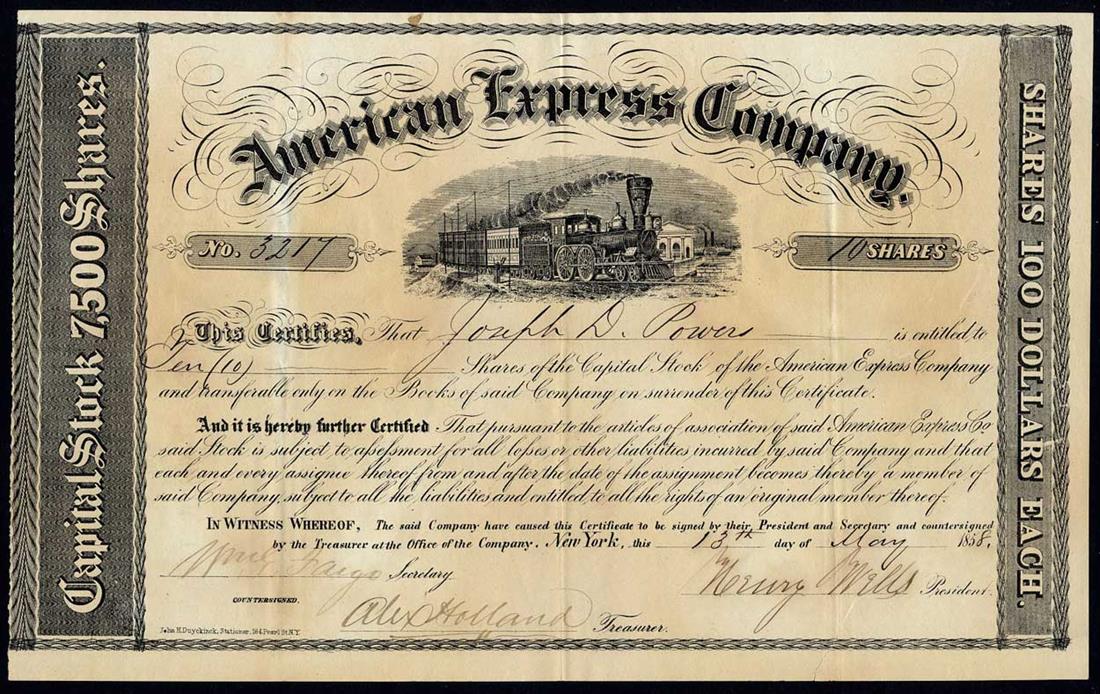 American Express Company.
No. 3217
10 SHARES
Capital Stock 7,500 Shares.
SHARES 100 DOLLARS EACH.
This Certifies, That Joseph D. Powers is entitled to
Ten (10) Shares of the Capital Stock of the American Express Company
and transferable only on the Books of said Company on surrender of this Certificate.
And it is hereby further Certified That pursuant to the articles of association of said American Express Co
said Stock is subject to assessment for all losses or other liabilities incurred by said Company and that
each and every assignee thereof from and after the date of the assignment becomes thereby a member of
said Company, subject to all the liabilities and entitled to all the rights of an original member thereof.
IN WITNESS WHEREOF, The said Company have caused this Certificate to be signed by their President and Secretary and countersigned
by the Treasurer at the Office of the Company. New York, this 13th day of May 1858.
Fargo Secretary
Henry Wells President.
COUNTERSIGNED.
Alex Holland Treasurer.
John H. Duyckinck, Stationer, 164 Pearl St. N.Y.